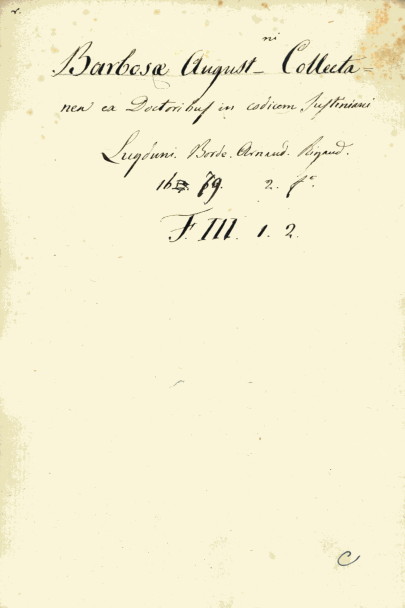 Barbosæ August_ni Collecta=
nea ea Doctoribus in codicem Justiniani
Lugduni. Borde. Arnaud. Rigaud.
79. 2. f°.
F. III. 1. 2.
C